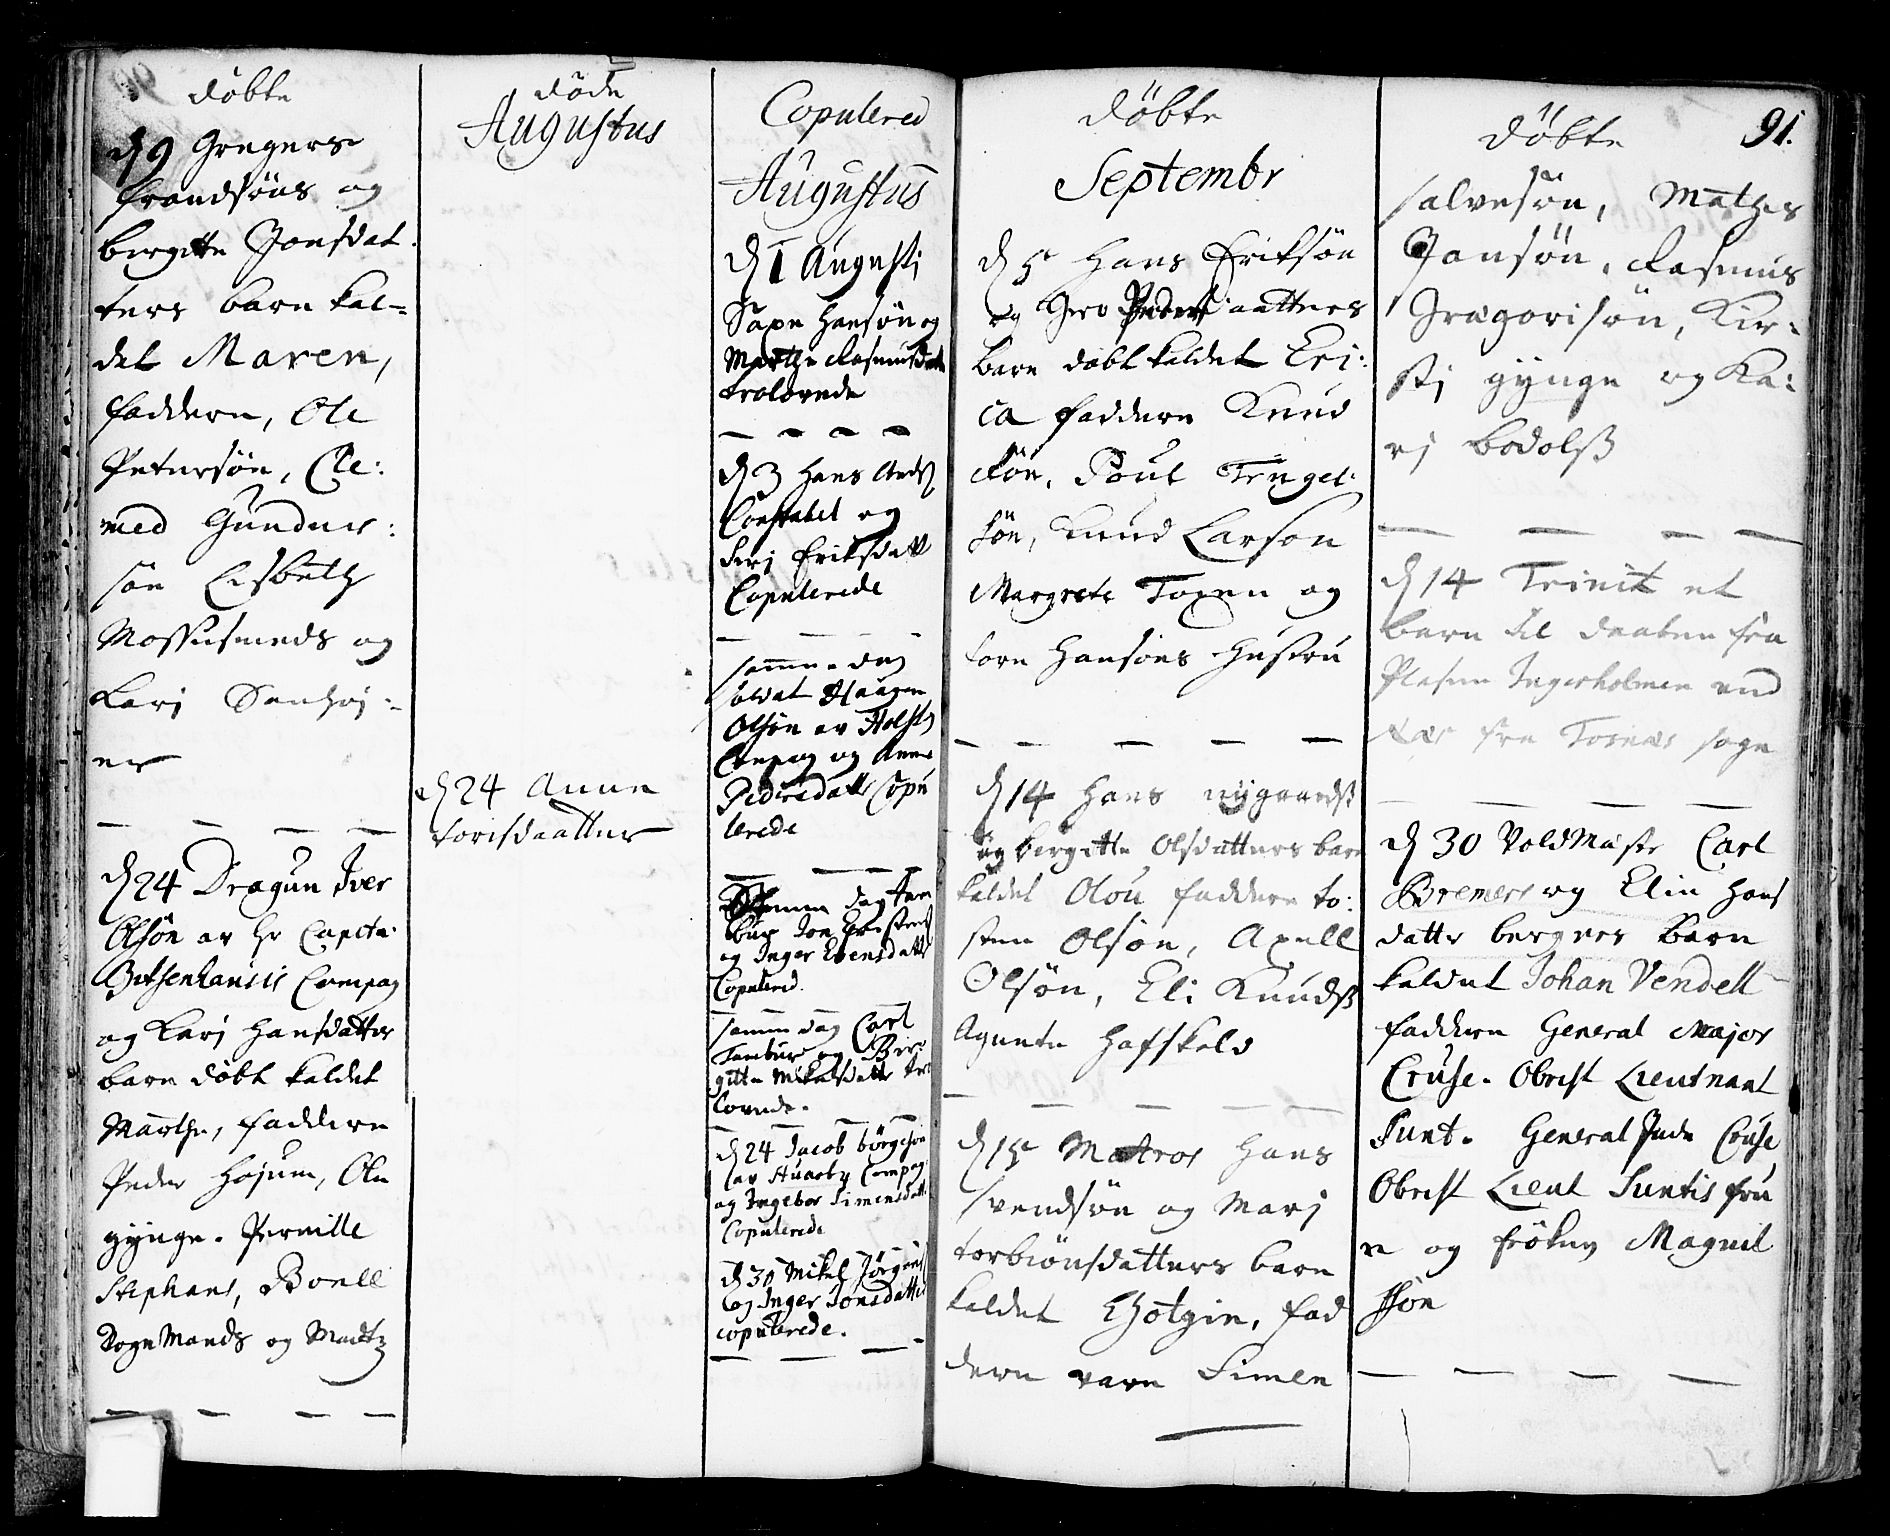 Döbte
d 9 Gregers
frandsöns og
birgitte Jonsdat
ters barn kal-
det Maren,
faddern, Ole
Petersön, Cle:
med Gunder:
sön Lisbeth
og
Kari
er
d 24 Dragun Iver
Olsön av Hr Capita:
Compag
og Kari Hansdatter
barn döbt kaldet
Marthe, faddern
Peder Hojum, Ole
gynge. Pernille
Stephans, Boell
Mands og
döde
Augustus
d 24 Anne
torisdaatter
Copulered
Augustus
d 1 Augusti
Saxe Hansön og
Marthe Rasmusdatt
trolovede
d 3 Hans And
Constabel og
Siri Eriksdatt
Copulerede
samme dag
soldat Haagen
Olsön av Holst
Compag og Anne
Pedersdatt Copu
lerede
samme dag
Jon
og Inger Evensdatt
Copulered.
samme dag Carl
Tambur og Bir
gitte Mikelsdatt tro
lovede.
d 24 Jacob börgesön
av Huusby Compag
og Ingebor Simensdatt
Copulerede
d 30 Mikel Jörgens
og Inger Jonsdatter
copulerede.
Döbte
Septembr
d 5 Hans Eriksön
og Gro Peders daatters
barn döbt kaldet Eri:
ca faddern Knud
Ron, Poul Tengel
sön, Knud Larson
Margrete Toxen og
tore Hansöns Hustru
d 14 Hans nygaards
og birgitte Olsdatters barn
kaldet Olou faddern to:
sten Olsön, Axell
Olsön, Eli Knuds
Agnete Hafskold
d 15 Matros Hans
svendsön og Mari
torbiönsdatters barn
kaldet, fad
dern vare Simen
Döbte
91.
salvesön, Mathis
Jansön, Rasmus
Gregorisön, Kir-
sti gynge og Ka:
ri bodolß
d 14 Trinit et
barn til daaben fra
Pladsen Ingerholmen
fra Torsnes sogn
d 30 VoldMester Carl
Bremers og Elin Hans
datter bergers barn
kaldet Johan Vendell
faddern General Major
Cruse. Obrist Lieutnant
Sunt. General Inde Cruse
Obrist Lieut Suntis fru
e og fröken Magnil
ssön